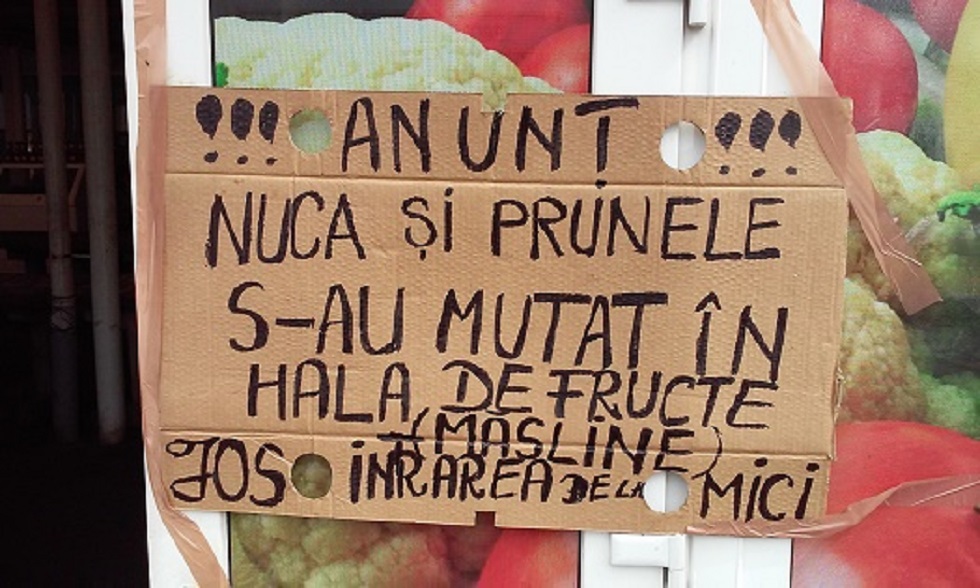 !!! ANUNȚ !!!
NUCA ȘI PRUNELE
S-AU MUTAT ÎN
HALA DE FRUCTE
(MASLINE)
JOS INRAREA DE LA MICI